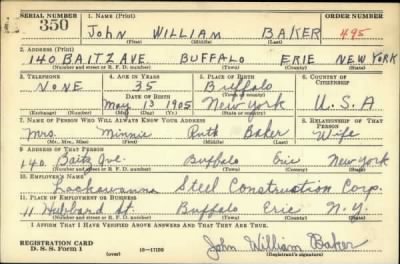 SERIAL NUMBER 1. NAME (Print) ORDER NUMBER
350 JOHN WILLIAM BAKER 495
(First) (Middle) (Last)
2. ADDRESS (Print)
140 BAITZ AVE BUFFALO ERIE NEW YORK
(Number and street or R. F. D. number) (Town) (County) (State)
3. TELEPHONE 4. AGE IN YEARS 5. PLACE OF BIRTH 6. COUNTRY OF CITIZENSHIP
NONE 35 Buffalo
DATE OF BIRTH (Town or county)
May 13 1905 New York U.S.A
(Exchange) (Number) (Mo.) (Day) (Yr.) (State or country)
7. NAME OF PERSON WHO WILL ALWAYS KNOW YOUR ADDRESS 8. RELATIONSHIP OF THAT PERSON
Mrs. Minnie Ruth Baker Wife
(Mr., Mrs., Miss) (First) (Middle) (Last)
9. ADDRESS OF THAT PERSON
140. Baitz Ave. Buffalo Erie New York
(Number and street or R. F. D. number) (Town) (County) (State)
10. EMPLOYER'S NAME
Lackawanna Steel Construction Corp.
11. PLACE OF EMPLOYMENT OR BUSINESS
11 Hubbard St. Buffalo Erie N.Y.
(Number and street or R. F. D. number) (Town) (County) (State)
I AFFIRM THAT I HAVE VERIFIED ABOVE ANSWERS AND THAT THEY ARE TRUE.
REGISTRATION CARD
D. S. S. FORM 1 (over) 16-17105 John William Baker
(Registrant's signature)